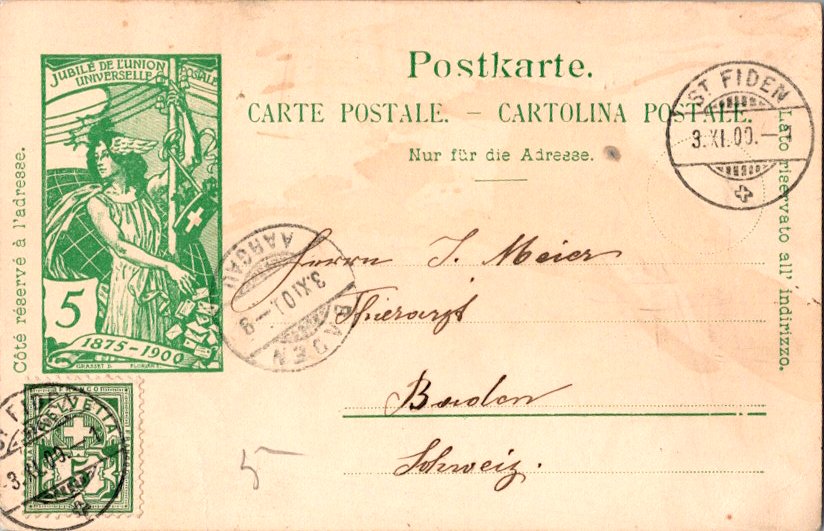 JUBILÉ DE L'UNION
UNIVERSELLE POSTALE
5
1875-1900
GRASSET D. FLORIAN S.
Côté réservé à l'adresse.
Postkarte.
CARTE POSTALE. – CARTOLINA POSTALE.
Nur für die Adresse.
Lato riservato all' indirizzo.
ST FIDEN
3.XI.00.–1
AARGAU
3.XI.0.–9
BADEN
Herrn J. Meier
Thierarzt
Baden
Schweiz.
5
FRANCO
HELVETIA
5
ST FIDEN
3.XI.00.–1